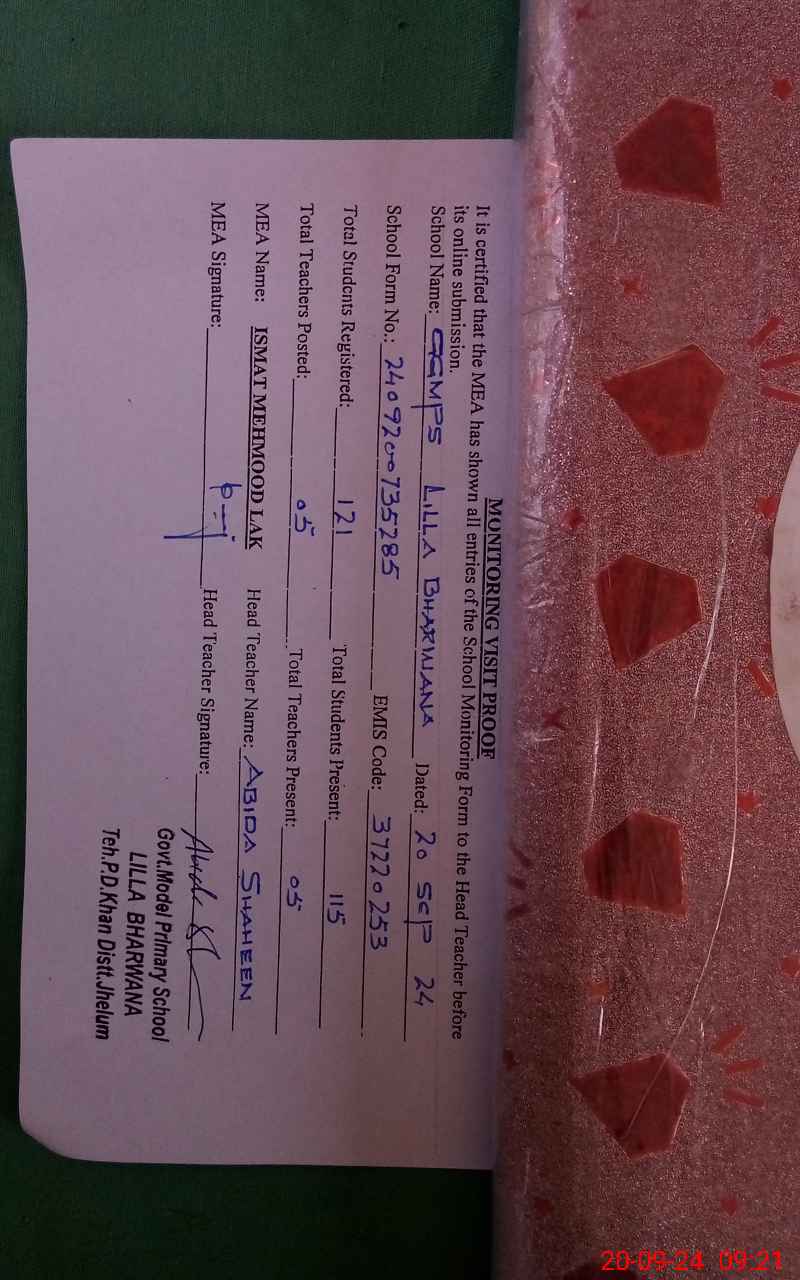 MONITORING VISIT PROOF
It is certified that the MEA has shown all entries of the School Monitoring Form to the Head Teacher before
its online submission.
School Name: GGMPS LILLA BHARWANA Dated: 20 Sep 24
School Form No.: 240920073​5285 EMIS Code: 37220253
Total Students Registered: 121 Total Students Present: 115
Total Teachers Posted: 05 Total Teachers Present: 05
MEA Name: ISMAT MEHMOOD LAK Head Teacher Name: ABIDA SHAHEEN
MEA Signature: Head Teacher Signature:
Govt.Model Primary School
LILLA BHARWANA
Teh.P.D.Khan Distt.Jhelum
20-09-24 09:21